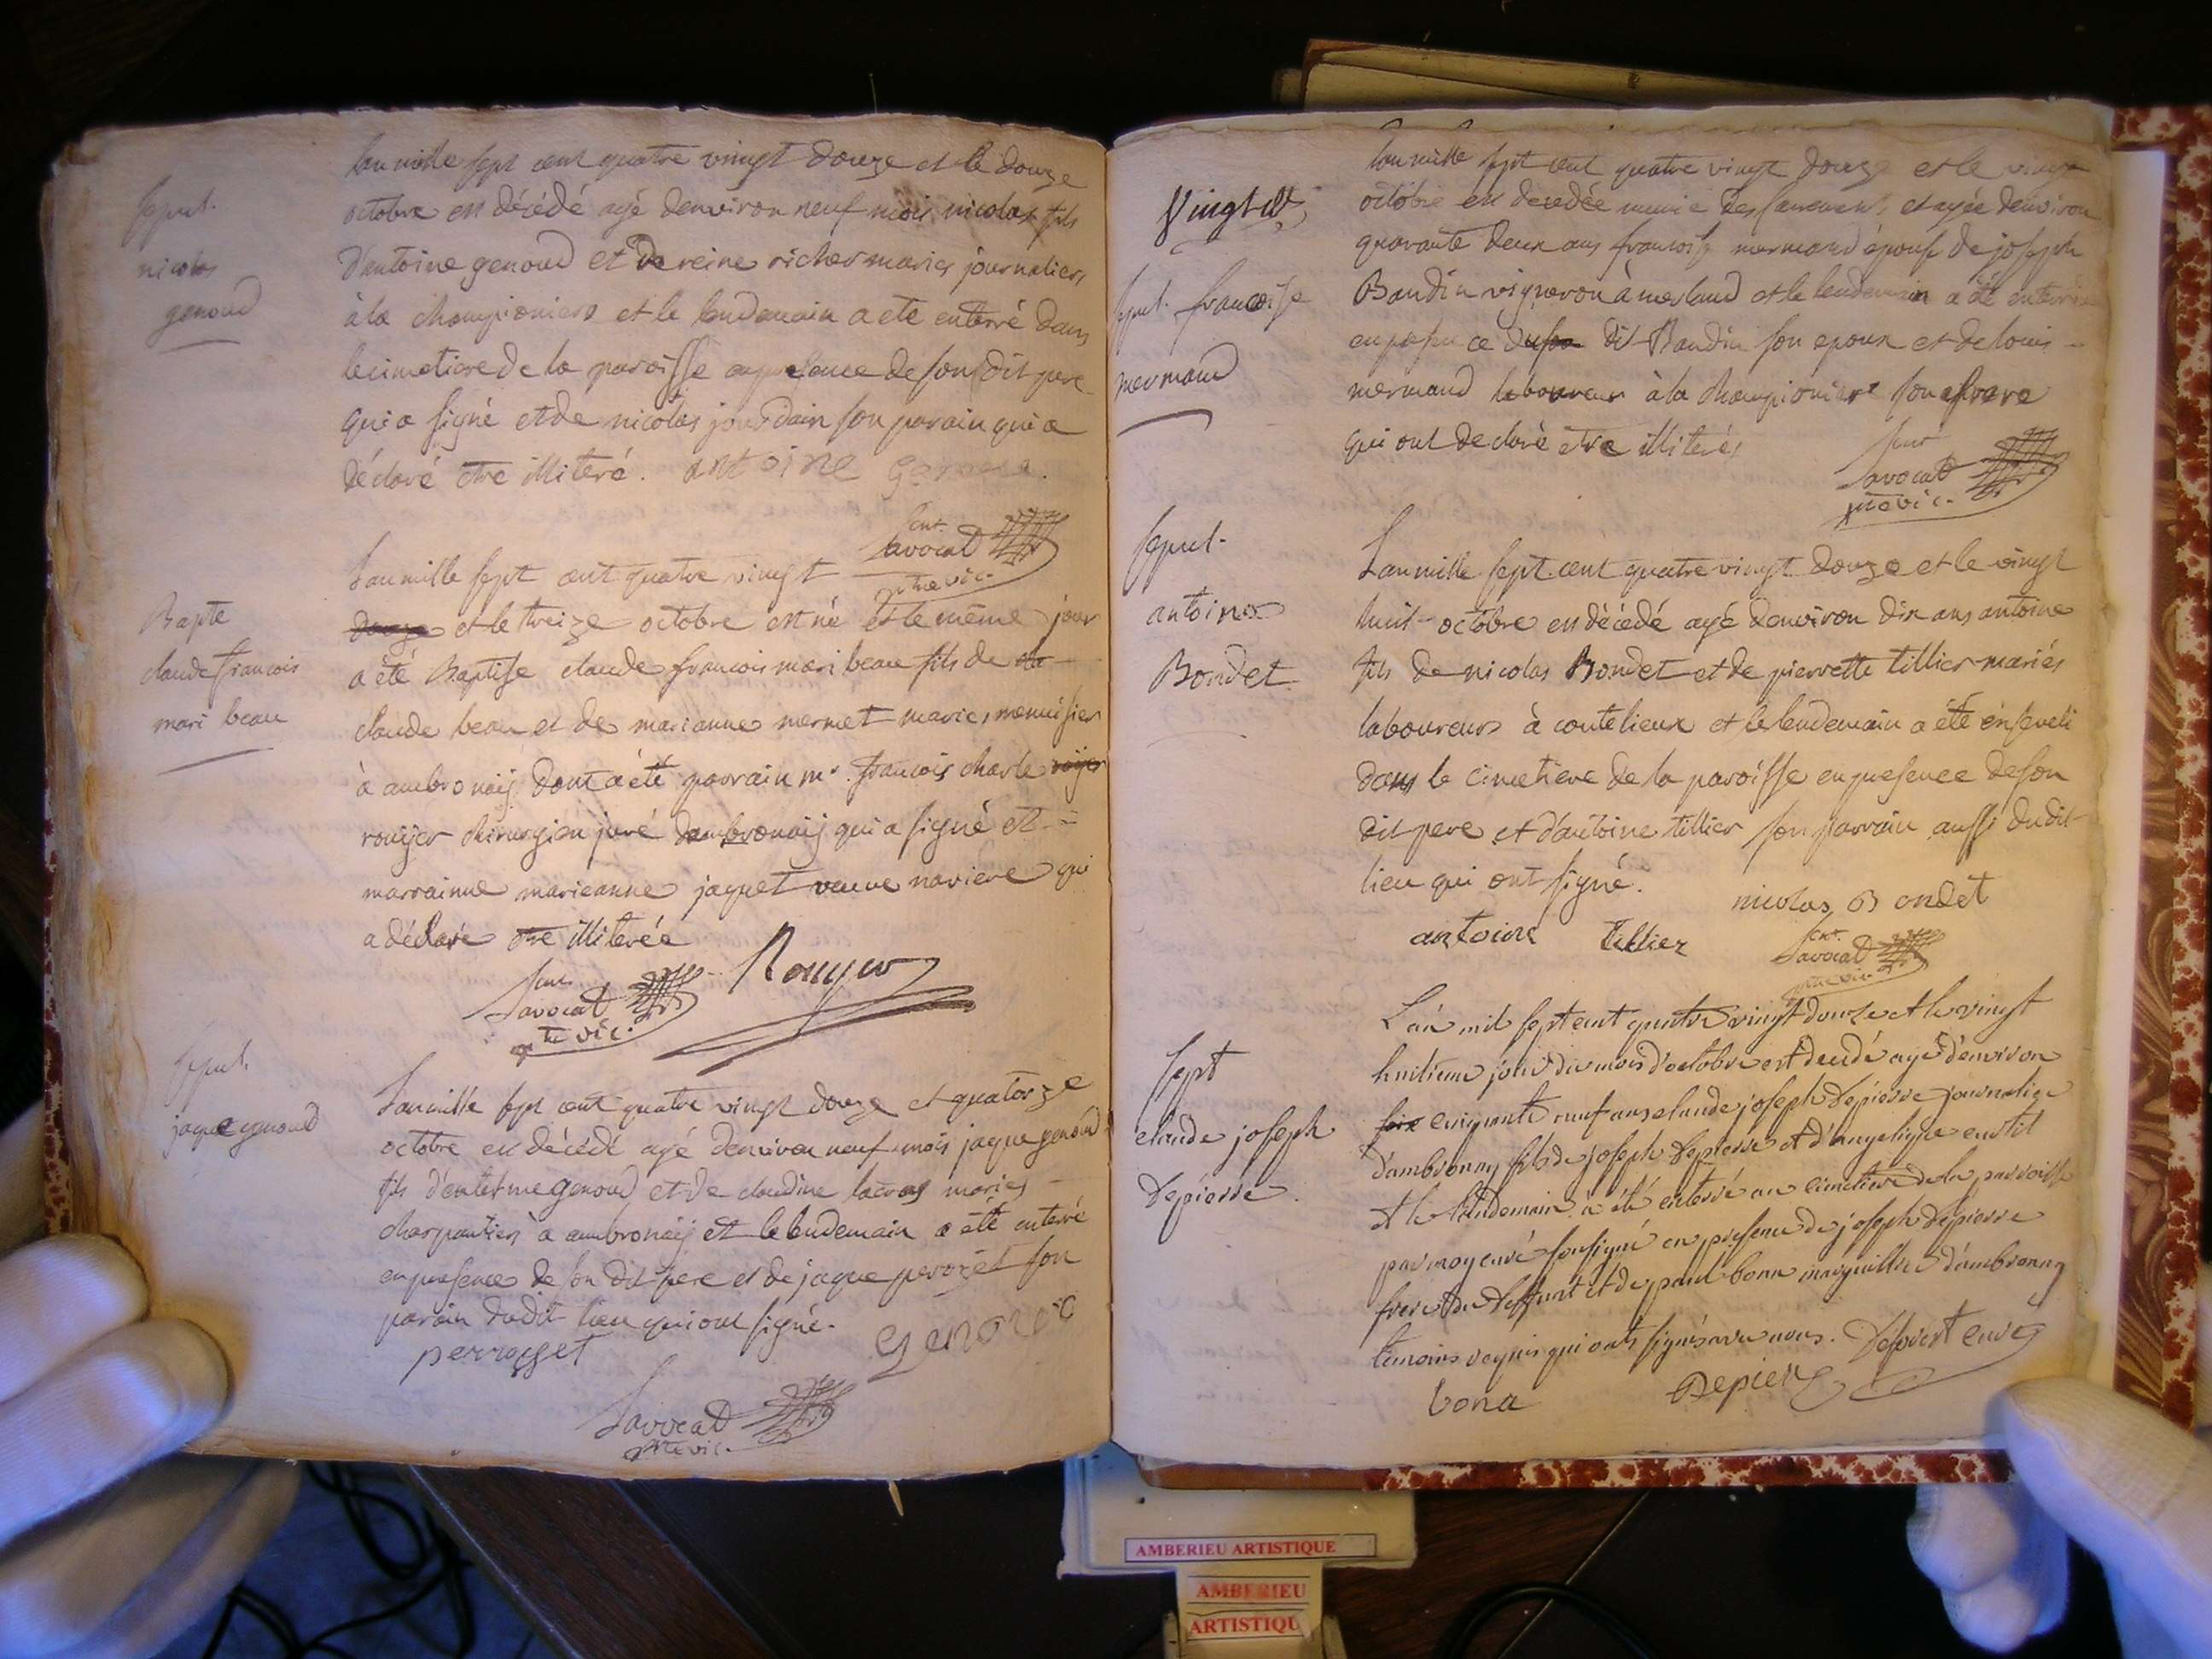 sepul.
nicolas
genoud
Lan mille sept cent quatre vingt douze et le douze
octobre est décédé agé denviron neuf mois nicolas fils
d'antoine genoud et de reine richer mariés journaliers
à la championiere et le lendemain a ete enterré dans
le cimetiere de la paroisse en presence de son dit pere
qui a signé et de nicolas jourdain son parain qui a
déclaré etre illiteré. antoine
Savocat
ptre vic.
Bapte
claude francois
mari beau
Lan mille sept cent quatre vingt
douze et le treize octobre est né et le même jour
a été Baptise claude francois mari beau fils de
claude beau et de marianne mermet mariés menuisier
à ambronaij dont a été parrain mr. francois charle
rouijer chirurgien juré dambronaij qui a signé et
marrainne marieanne jaquet veuve naviere qui
a déclaré etre illiterée
Savocat Rouyer
ptre vic.
sepul.
jaque genoud
Lan mille sept cent quatre vingt douze et quatorze
octobre est décédé agé denviron neuf mois jaque genoud
fils d'entelme genoud et de claudine lacras mariés
charpantiers à ambronaij et le lendemain a été enterré
en presence de son dit pere et de jaque perozet son
parain dudit lieu qui ont signé.
perrozset
Savocat
ptre vic.
Vingt
sepul. francoise
mermand
Lan mille sept cent quatre vingt douze et le vingt
octobre est decedée munie des sacremens et agée denviron
quarante deux ans francoise mermand épouse de joseph
Baudin vigneron à merland et le lendemain a été enterrée
en presence du dit Baudin son epoux et de louis
mermand laboureur à la championiere son frere
qui ont declaré etre illiterés
Savocat
ptre vic.
sepul.
antoine
Bondet
Lan mille sept cent quatre vingt douze et le vingt
huit octobre est décédé agé denviron dix ans antoine
fils de nicolas Bondet et de pierrette tillier mariés
laboureurs à coutelieux et le lendemain a été enseveli
dans le cimetiere de la paroisse en presence de son
dit pere et d'antoine tillier son parrain aussi dudit
lieu qui ont signé.
nicolas Bondet
antoine tillier Savocat
ptre vic.
sept
claude joseph
Depierre.
L'an mil sept cent quatre vingt douze et le vingt
huitieme jour du mois d'octobre est decedé agé d'environ
cinquante neuf ans claude joseph Depierre journalier
d'ambronay fils de joseph Depierre et d'angelique
et le lendemain a été enterré au cimetiere de la parroisse
par moy curé soussigné en presence de joseph Depierre
frere du deffunt et de paul bona marguillier d'ambronay
temoins requis qui ont signés avec nous. curé
bona Depierre
AMBERIEU ARTISTIQUE
AMBERIEU
ARTISTIQU